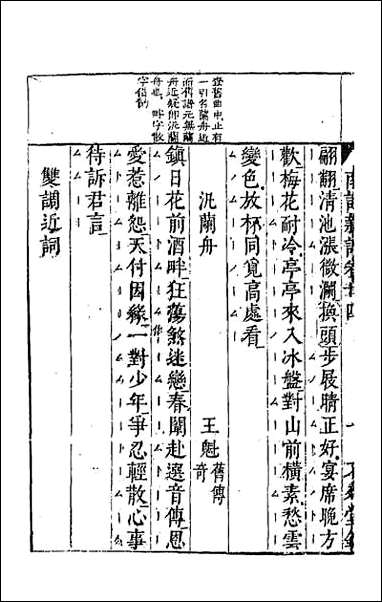 南詞新譜卷廿四 一
翩翩清池漲微瀾換頭步屐晴正好宴席晚方
歡梅花耐冷亭亭來入冰盤對山前橫素愁雲
變色放杯同覓高處看
查舊曲中止有
一引名蘭舟近
而舊譜元無蘭
舟近疑即汎蘭
舟也 畔字散
字俱
汎蘭舟 王魁舊傳奇
鎮日花前酒畔狂蕩煞迷戀春闈赴選音傳恩
愛惹離怨天付因緣一對少年爭忍輕散心事
待訴君言
雙調近詞